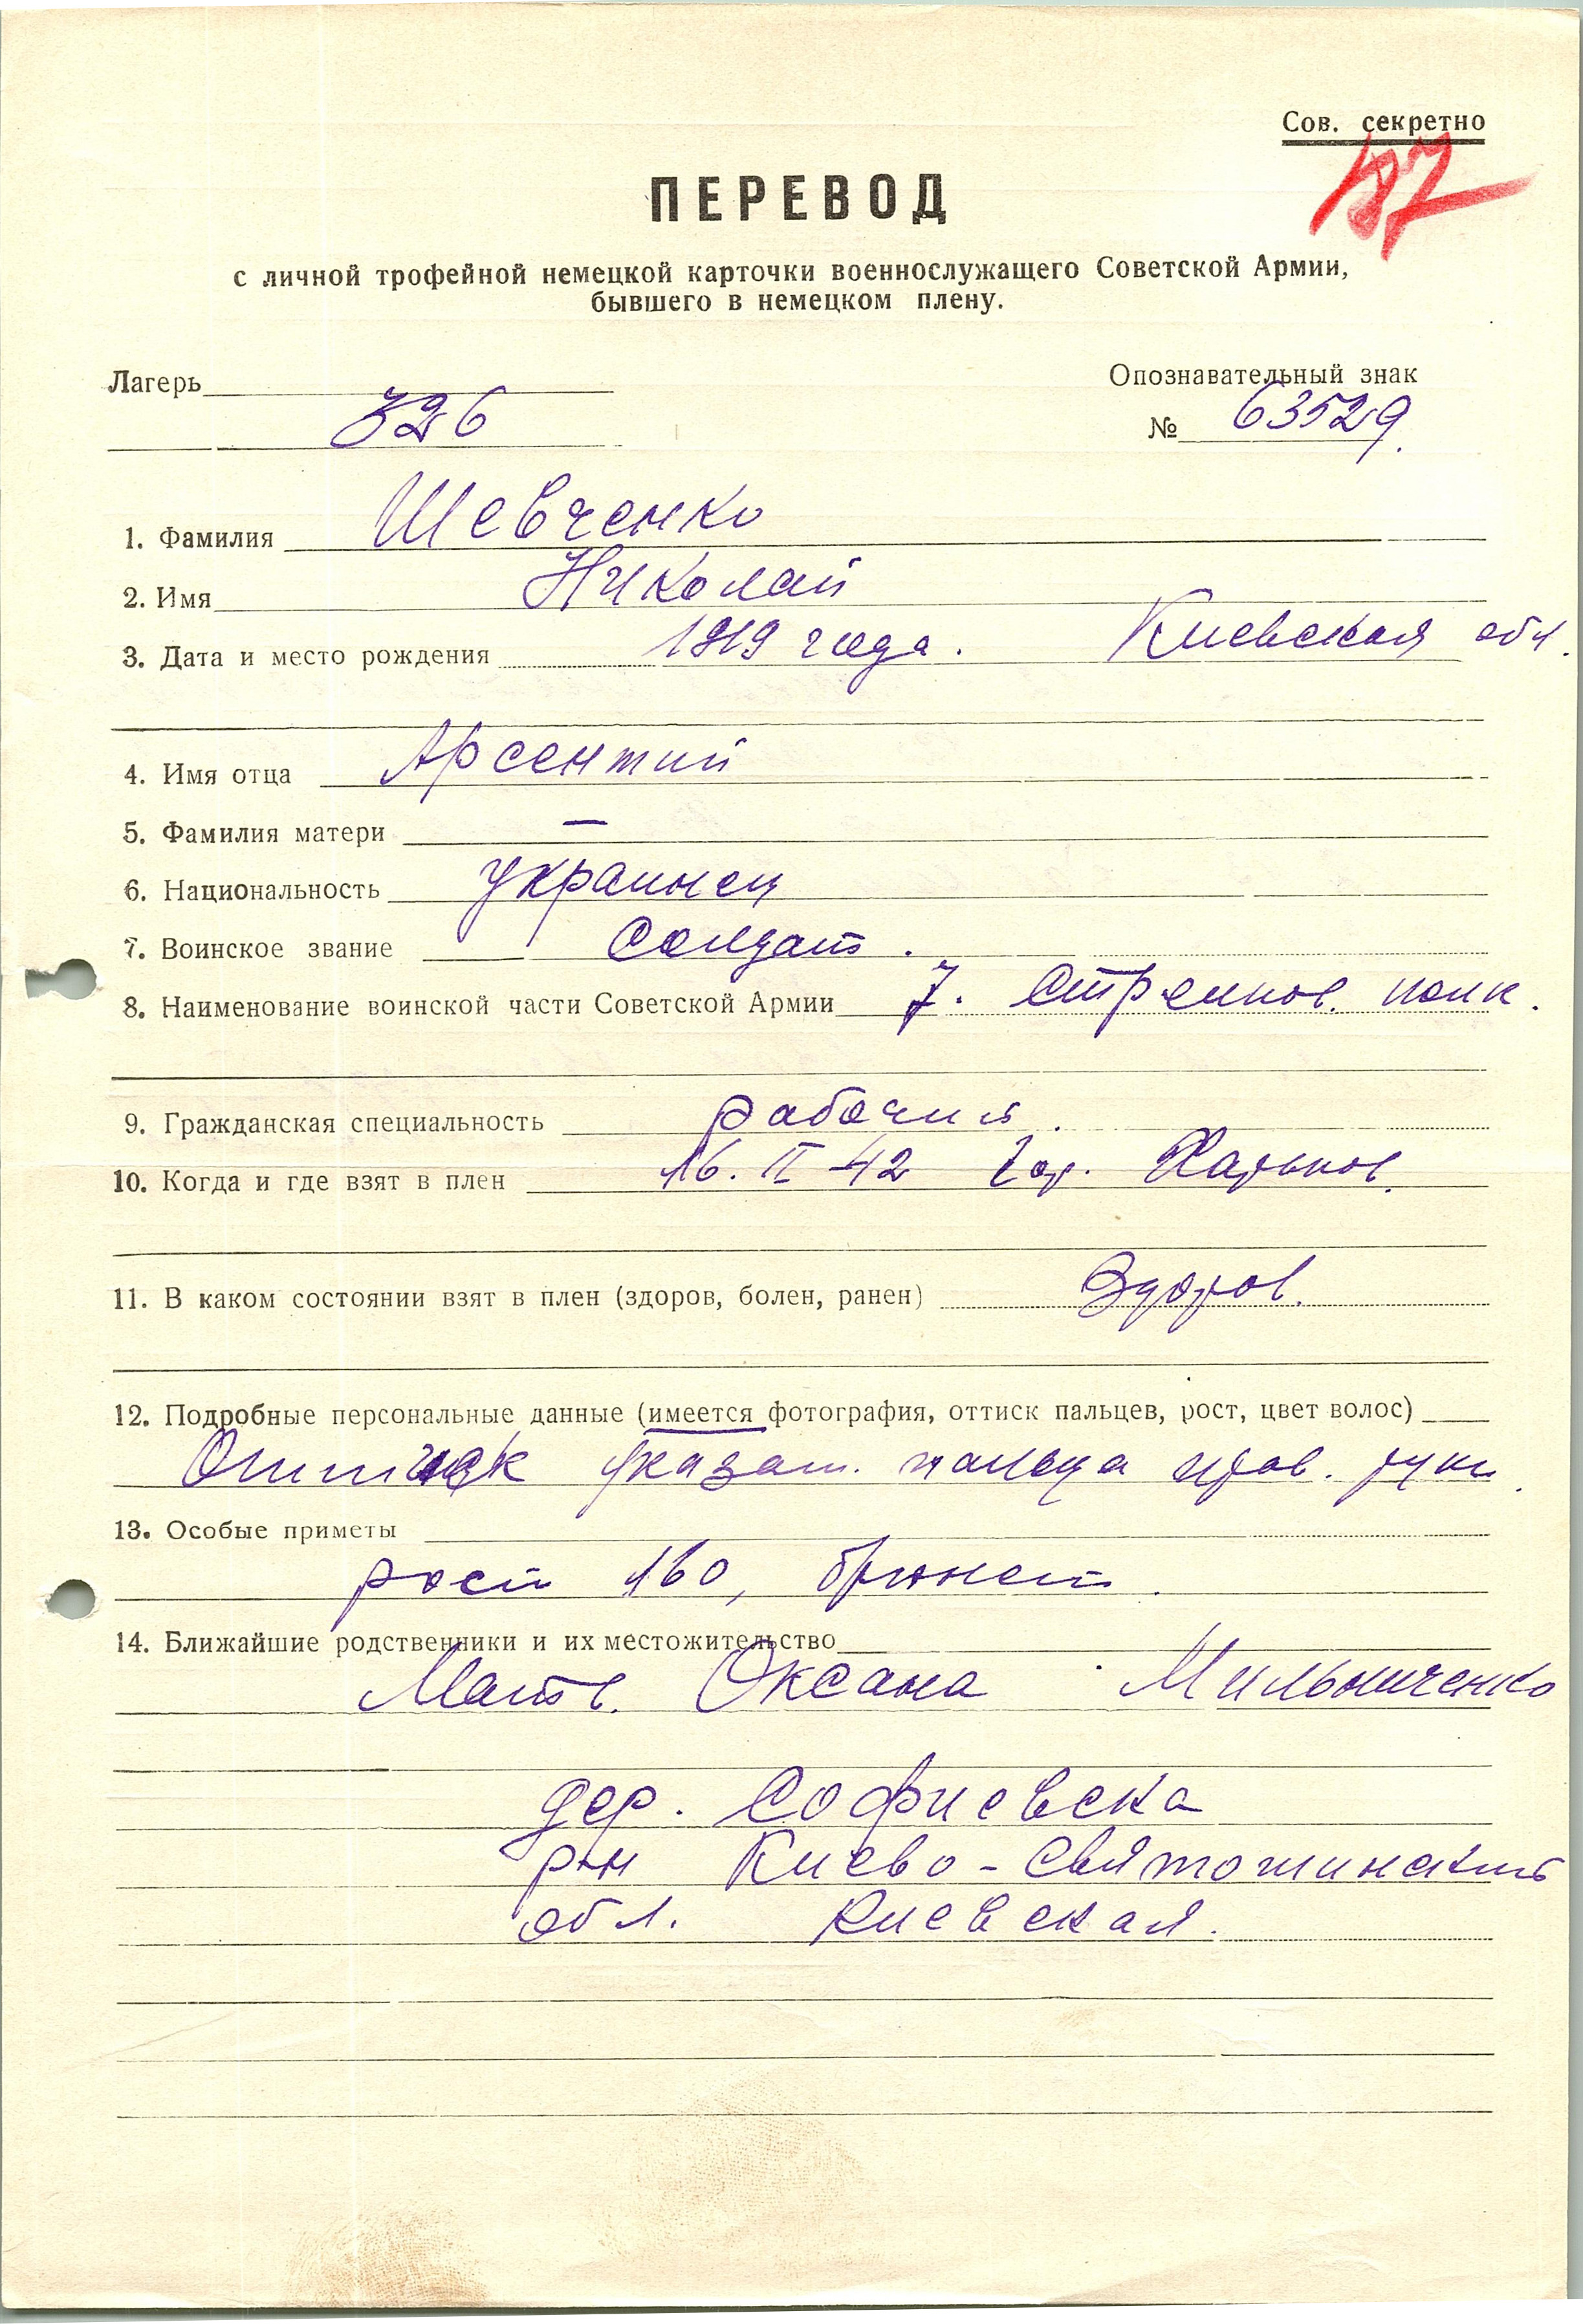 Сов. секретно
187
ПЕРЕВОД
с личной трофейной немецкой карточки военнослужащего Советской Армии,
бывшего в немецком плену.
Лагерь
326
Опознавательный знак
№ 63529.
1. Фамилия Шевченко
2. Имя Николай
3. Дата и место рождения 1919 года. Киевская обл.
4. Имя отца Арсентий
5. Фамилия матери —
6. Национальность украинец
7. Воинское звание Солдат.
8. Наименование воинской части Советской Армии 7. Стрелков. полк.
9. Гражданская специальность рабочий.
10. Когда и где взят в плен 16. II 42 гор. Харьков.
11. В каком состоянии взят в плен (здоров, болен, ранен) Здоров.
12. Подробные персональные данные (имеется фотография, оттиск пальцев, рост, цвет волос)
Оттиск указат. пальца прав. руки.
13. Особые приметы
рост 160, брюнет.
14. Ближайшие родственники и их местожительство
Мать. Оксана Мильниченко
дер. Софиевска
р-н Киево-Святошинский
обл. Киевская.